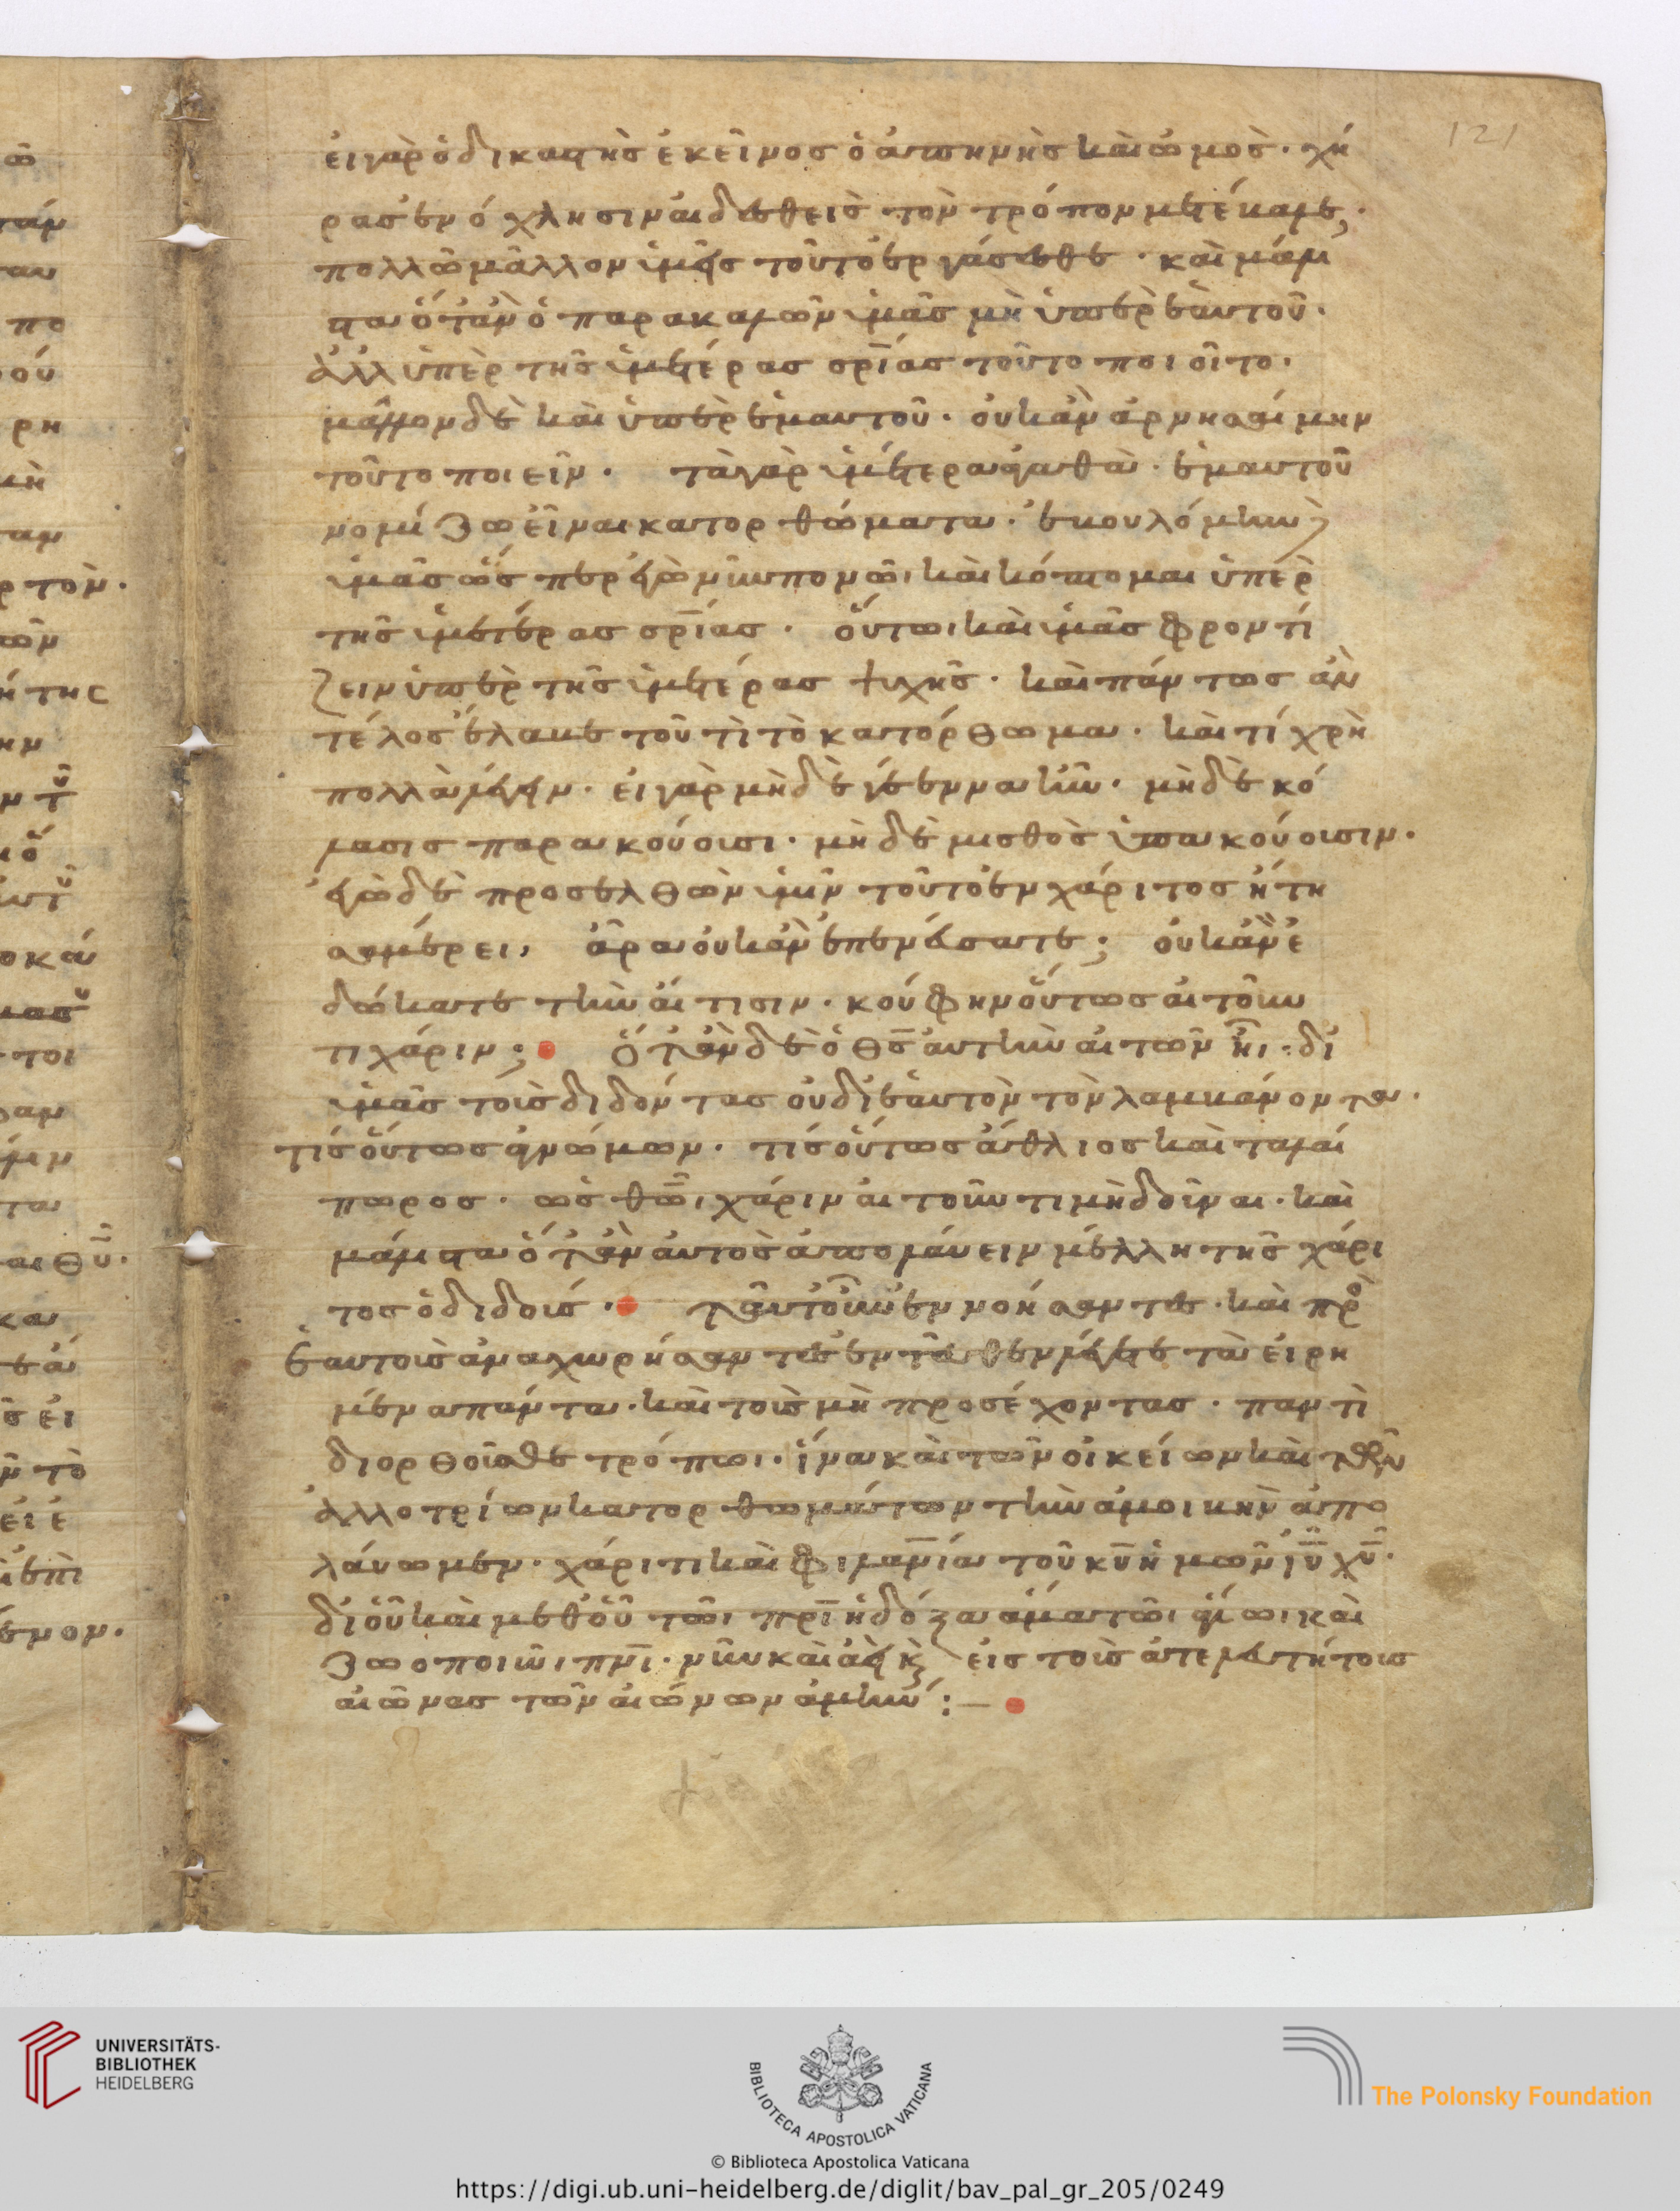 121
εἰ γὰρ ὁ δικαστὴς ἐκεῖνος ὁ ἀπηνὴς καὶ ὠμὸς. χή
ρας ἐνόχλησιν αἰδεσθεὶς τὸν τρόπον μετέβαλε,
πολλῶ μᾶλλον ὑμᾶς τοῦτο ἐργάσεσθε. καὶ μάλι
στα ὅταν ὁ παρακαλῶν ὑμᾶς μὴ ὑπὲρ ἑαυτοῦ.
ἀλλ ὑπὲρ τῆς ὑμετέρας σρίας τοῦτο ποιοῖτο.
μᾶλλον δὲ καὶ ὑπὲρ ἐμαυτοῦ. οὐκ ἂν ἀρνησαίμην
τοῦτο ποιεῖν. τὰ γὰρ ὑμέτερα ἀγαθὰ. ἐμαυτοῦ
νομίζω εἶναι κατορθώματα. ἐβουλόμην
ὑμᾶς ὥσπερ ἐγὼ νῦν πονῶ, καὶ κόπτομαι ὑπὲρ
τῆς ὑμετέρας σρίας. οὕτω καὶ ὑμᾶς φροντί
ζειν ὑπὲρ τῆς ὑμετέρας ψυχῆς. καὶ πάντως ἂν
τέλος ἔλαβε τουτὶ τὸ κατόρθωμα. καὶ τί χρὴ
πολλὰ λέγειν. εἰ γὰρ μὴδὲ γέεννα ἦν. μὴδὲ κό
λασις παρακούουσι. μὴδὲ μισθὸς ὑπακούουσιν.
ἐγὼ δὲ προσελθὼν ὑμῖν τοῦτο ἐν χάριτος ἤτη
σα μέρει, ἆρα οὐκ ἂν ἐπενεύσατε; οὐκ ἂν ἐ
δώκατε τὴν αἴτησιν. κούφην οὕτως αἰτοῦν
τι χάριν; Ὅταν δὲ ὁ θς αὐτὴν αἰτῶν ἦι. δι
ὑμᾶς τοὺς διδόντας οὐ δι ἑαυτὸν τὸν λαμβάνοντα.
τίς οὕτως ἀγνώμων. τίς οὕτως ἄθλιος καὶ ταλαί
πωρος. ὡς θῶ, χάριν αἰτοῦντι μὴ δοῦναι. καὶ
μάλιστα ὅταν αὐτὸς ἀπολαύειν μέλλη τῆς χάρι
τος ὁ διδούς. ταῦτ οὖν ἐννοήσαντες. καὶ πρὸ
ἑαυτοὺς ἀναχωρήσαντες ἐντεῦθεν λέγετε τὰ εἰρη
μένα πάντα. καὶ τοὺς μὴ προσέχοντας. παντὶ
διορθοῦσθε τρόπωι. ἵνα καὶ τῶν οἰκείων καὶ τῶν
ἀλλοτρίων κατορθωμάτων τὴν ἀμοιβὴν ἀπο
λαύωμεν. χάριτι καὶ φιλανία τοῦ κυ ἡμῶν ιυ χυ.
δι οὗ καὶ μεθ οὗ τῶι πρι ἡ δόξα ἅμα τῶι ἁγίωι καὶ
ζωοποιῶι πνι. νῦν καὶ ἀεὶ κ, εἰς τοὺς ἀτελευτήτους
αἰῶνας τῶν αἰώνων ἀμήν:—
UNIVERSITÄTS-
BIBLIOTHEK
HEIDELBERG
BIBLIOTECA APOSTOLICA VATICANA
The Polonsky Foundation
© Biblioteca Apostolica Vaticana
https://digi.ub.uni-heidelberg.de/diglit/bav_pal_gr_205/0249